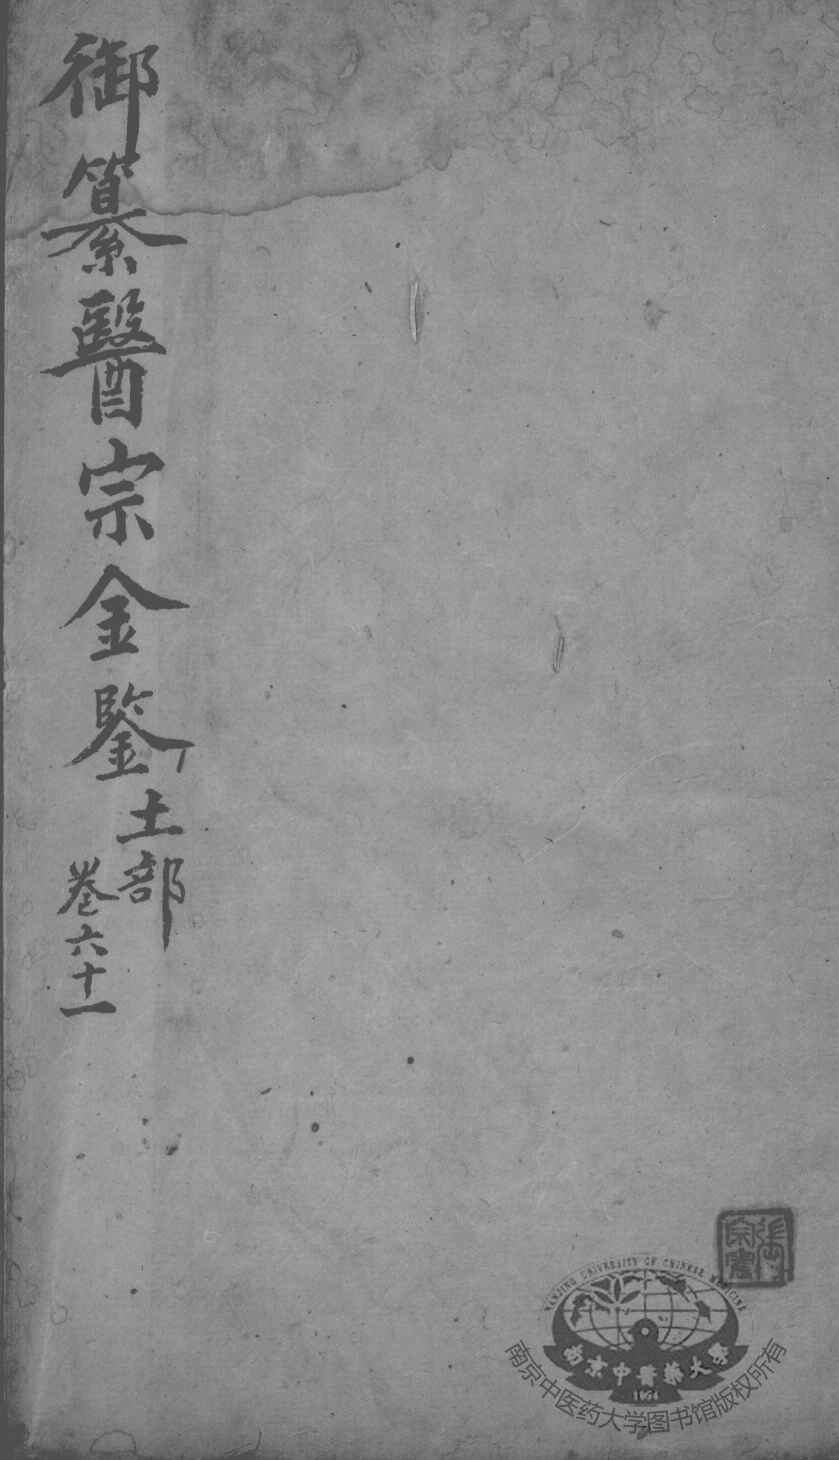 御纂醫宗金鑒
土部
卷六十一
NANJING UNIVERSITY OF CHINESE MEDICINE
南京中醫藥大學
1954
南京中医药大学图书馆版权所有